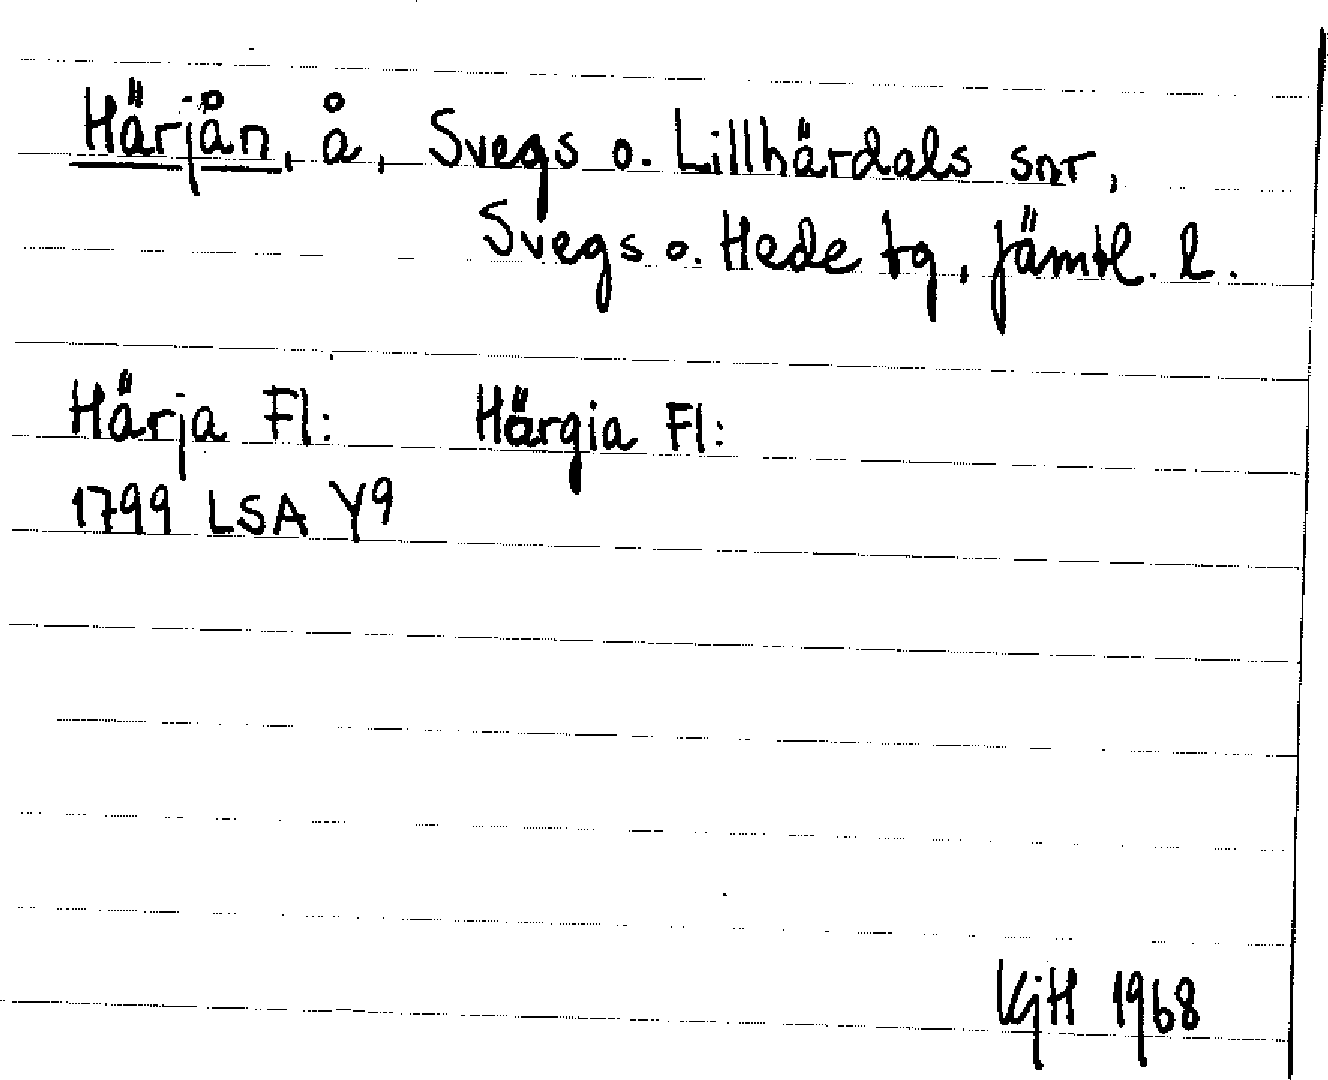 Härjån, å, Svegs o. Lillhärdals snr,
Svegs o. Hede tg, Jämtl. l.
Härja Fl: Härgia Fl:
1799 LSA Y9
KjH 1968